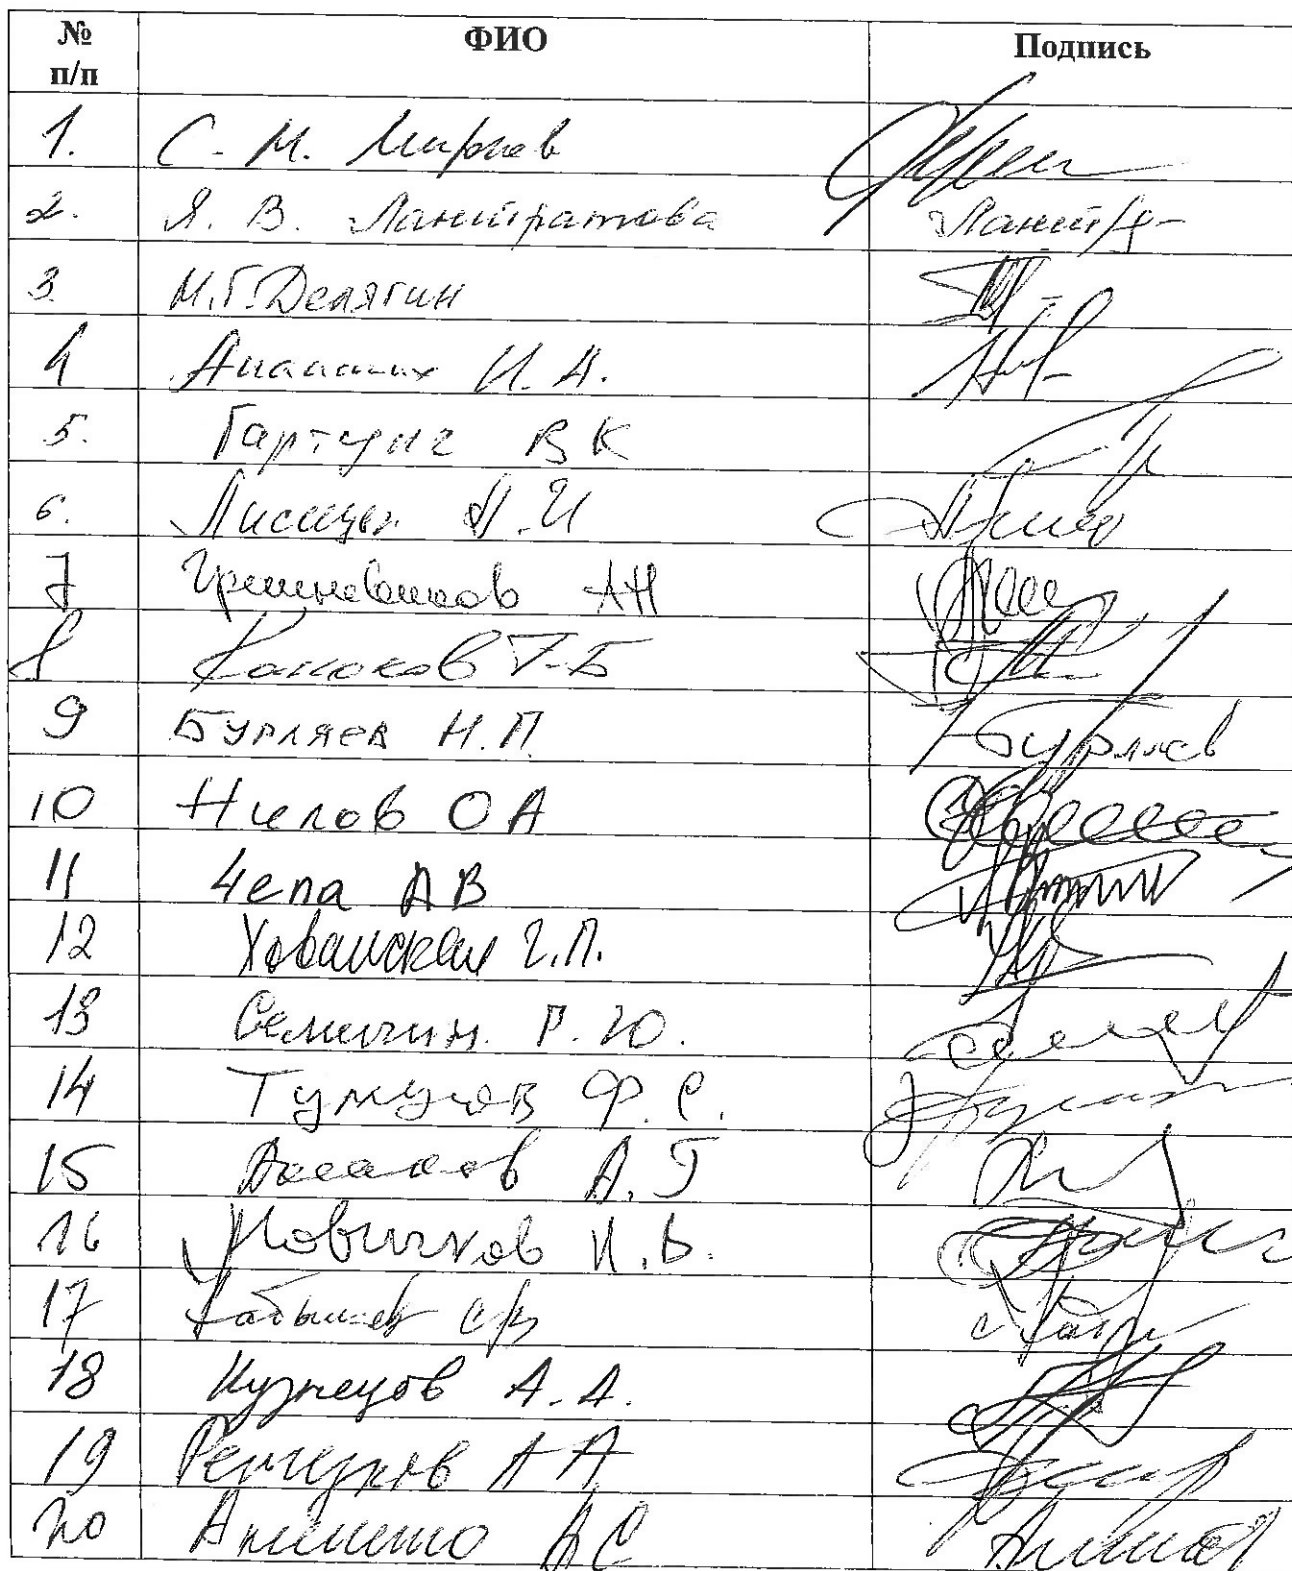 № п/п ФИО Подпись
1. С. М. Миронов
2. Я. В. Лантратова Лантр
3. М.Г. Делягин
4 Ананских И. А.
5. Гартунг В К
6. Лисицын А. И
7 Грешневиков АН
8 Каноков Т-Б
9 Бурляев Н.П. Бурляев
10 Нилов О А
11 Чепа АВ
12 Хованская Г.П.
13 Семигин Г. Ю.
14 Тумусов Ф. С.
15 Аксаков А. Г
16 Новичков Н. В.
17 Кабышев
18 Кузнецов А. А.
19 Ремезков А А
20 Аксененко А С